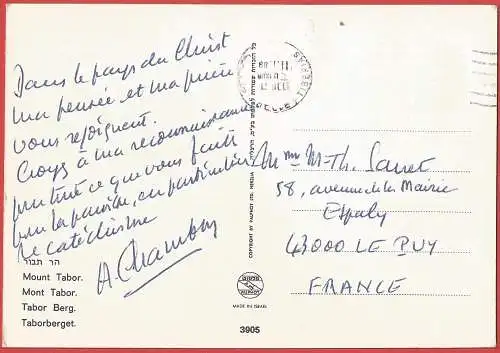 Dans le pays du Christ
ma pensée et ma prière
vous rejoignent.
Croyez à ma reconnaissance
pour tout ce que vous faites
pour la paroisse, en particulier
le catéchisme
A. Chambon
הר תבור
Mount Tabor.
Mont Tabor.
Tabor Berg.
Taborberget.
MADE IN ISRAEL
3905
COPYRIGHT BY PALPHOT LTD. HERZLIA
TIBERIAS
Mme M-Th. Sanet
58, avenue de la Mairie
Espaly
43000 LE PUY
FRANCE